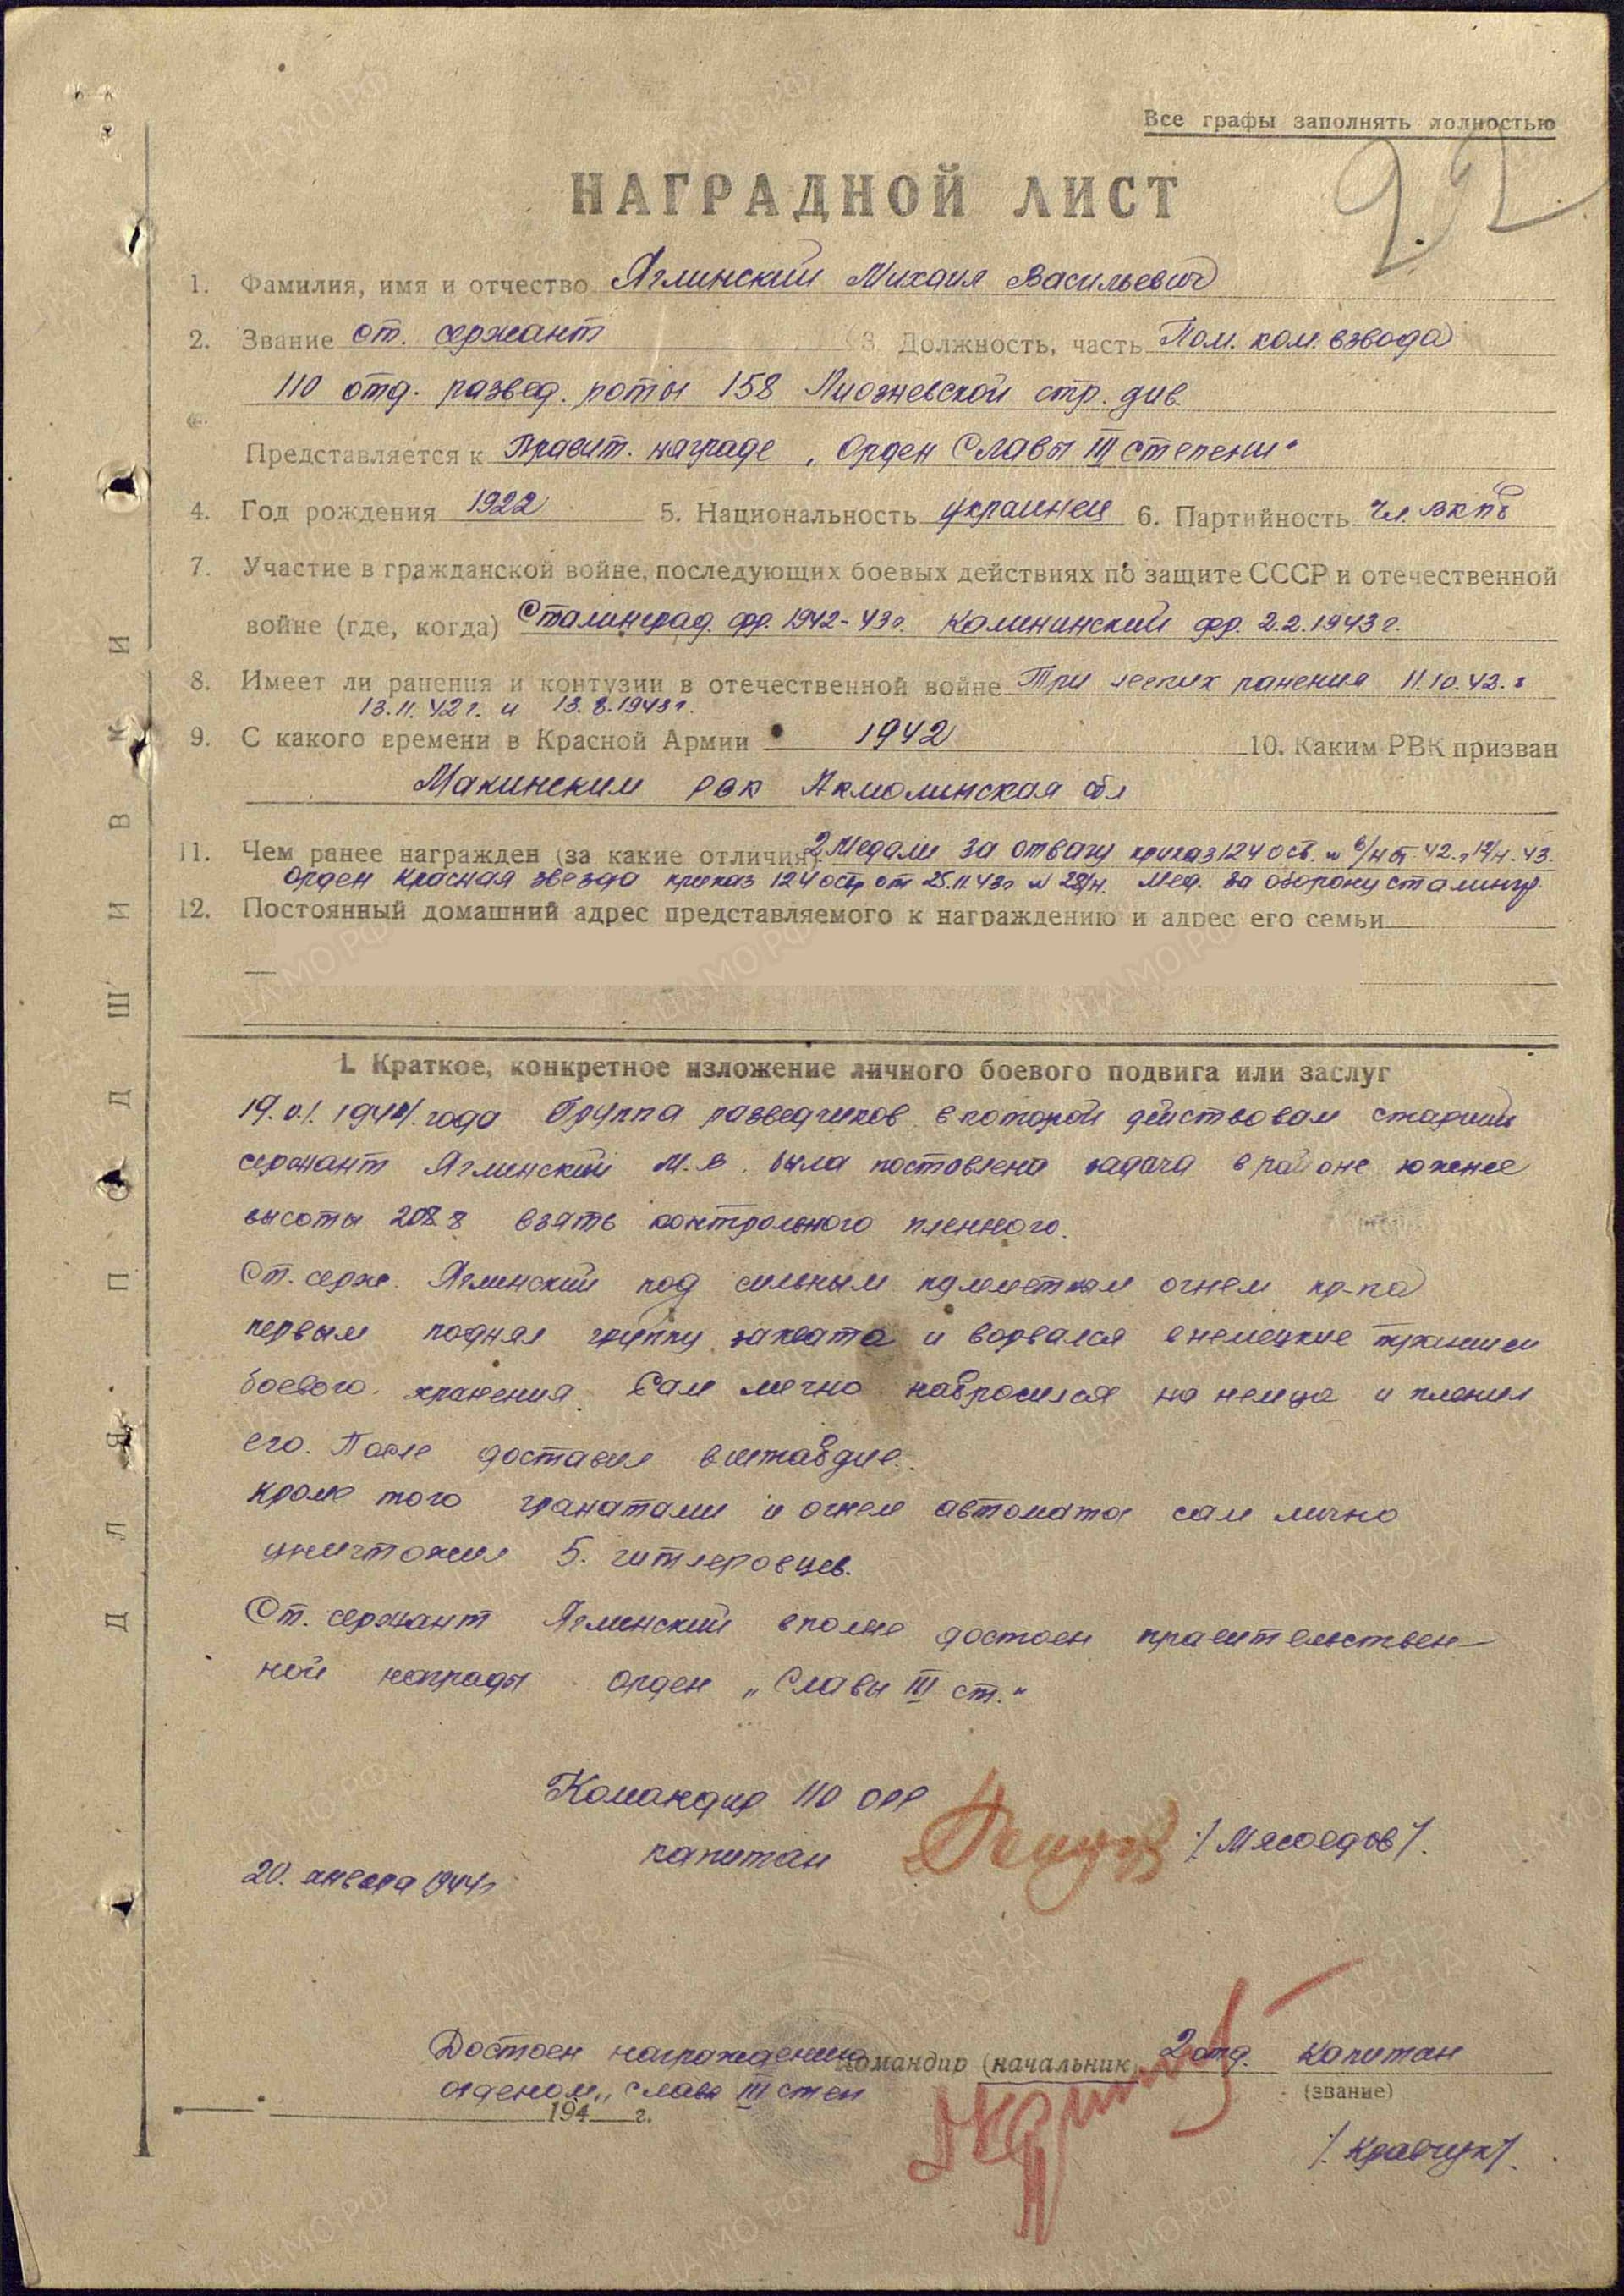 Все графы заполнять полностью
22
НАГРАДНОЙ ЛИСТ
1. Фамилия, имя и отчество Яглинский Михаил Васильевич
2. Звание ст. сержант 3. Должность, часть Пом. ком. взвода
110 отд. развед. роты 158 Лиозневской стр. див.
Представляется к Правит. награде „Орден Славы III степени"
4. Год рождения 1922 5. Национальность украинец 6. Партийность Чл. ВКПб
7. Участие в гражданской войне, последующих боевых действиях по защите СССР и отечественной
войне (где, когда) Сталинград. фр. 1942-43г. Калининский фр. 2.2.1943г.
8. Имеет ли ранения и контузии в отечественной войне Три легких ранения 11.10.42.г
13.11.42г. и 13.8.1943г.
9. С какого времени в Красной Армии 1942 10. Каким РВК призван
Макинским рвк Акмолинская обл
11. Чем ранее награжден (за какие отличия) 2 Медали за отвагу приказ 124 42. 43.
Орден Красная звезда приказ 124 от 25.11.43г № 28/н. Мед. за оборону сталингр.
12. Постоянный домашний адрес представляемого к награждению и адрес его семьи
I. Краткое, конкретное изложение личного боевого подвига или заслуг
19.01.1944 года Группа разведчиков в которой действовал старший
сержант Яглинский М.В. была поставлена задача в районе южнее
высоты 208.8 взять контрольного пленного.
Ст. серж. Яглинский под сильным пулеметным огнем пр-ка
первым поднял группу захвата и ворвался в немецкие траншеи
боевого хранения. Сам лично набросился на немца и пленил
его. После доставил в штабдив.
Кроме того гранатами и огнем автомата сам лично
уничтожил 5. гитлеровцев.
Ст. сержант Яглинский вполне достоен правительствен-
ной награды орден „Славы III ст."
Командир 110 орр
капитан /Мясоедов/.
20. января 1944г
Достоен награждения Командир (начальник) 2 отд. Капитан
орденом „Слава III степ (звание)
194 г.
/Кравчук/.
ДЛЯ ПОДШИВКИ